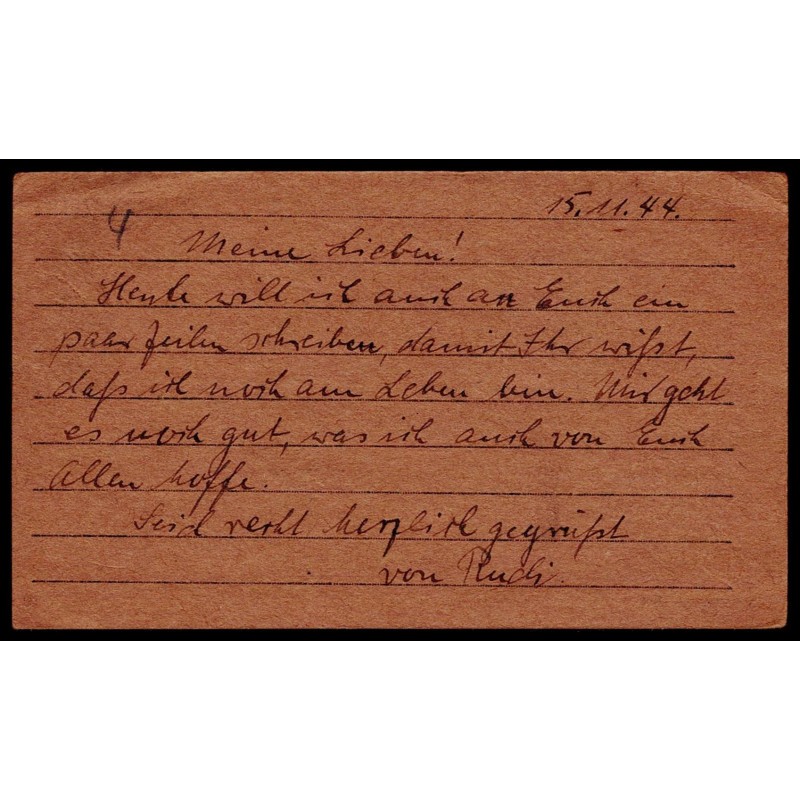 15.11.44.
4
Meine Lieben!
Heute will ich auch an Euch ein
paar Zeilen schreiben, damit Ihr wißt,
daß ich noch am Leben bin. Mir geht
es noch gut, was ich auch von Euch
Allen hoffe.
Seid recht herzlich gegrüßt
von Rudi.